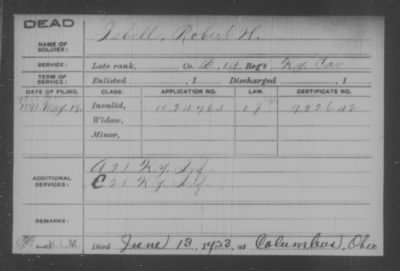 DEAD
Isbell, Robert H.
NAME OF SOLDIER:
SERVICE: Late rank, Co. D, 1st Reg't Ky. Cav
TERM OF SERVICE: Enlisted , 1 Discharged , 1
DATE OF FILING. CLASS. APPLICATION NO. LAW. CERTIFICATE NO.
1891 May 19. Invalid,
Widow,
Minor,
ADDITIONAL SERVICES:
A 21 Ky. Inf.
C 21 Ky. Inf.
REMARKS:
Died June 13, 1923, at Columbus, Ohio